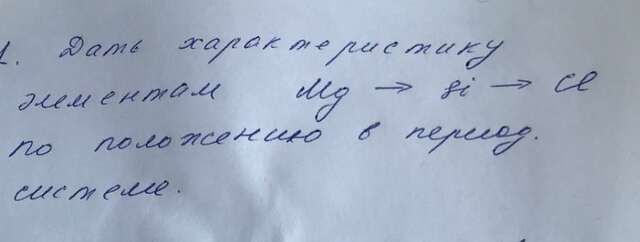 1. Дать характеристику
элементам Mg → Si → Cl
по положению в период.
системе.